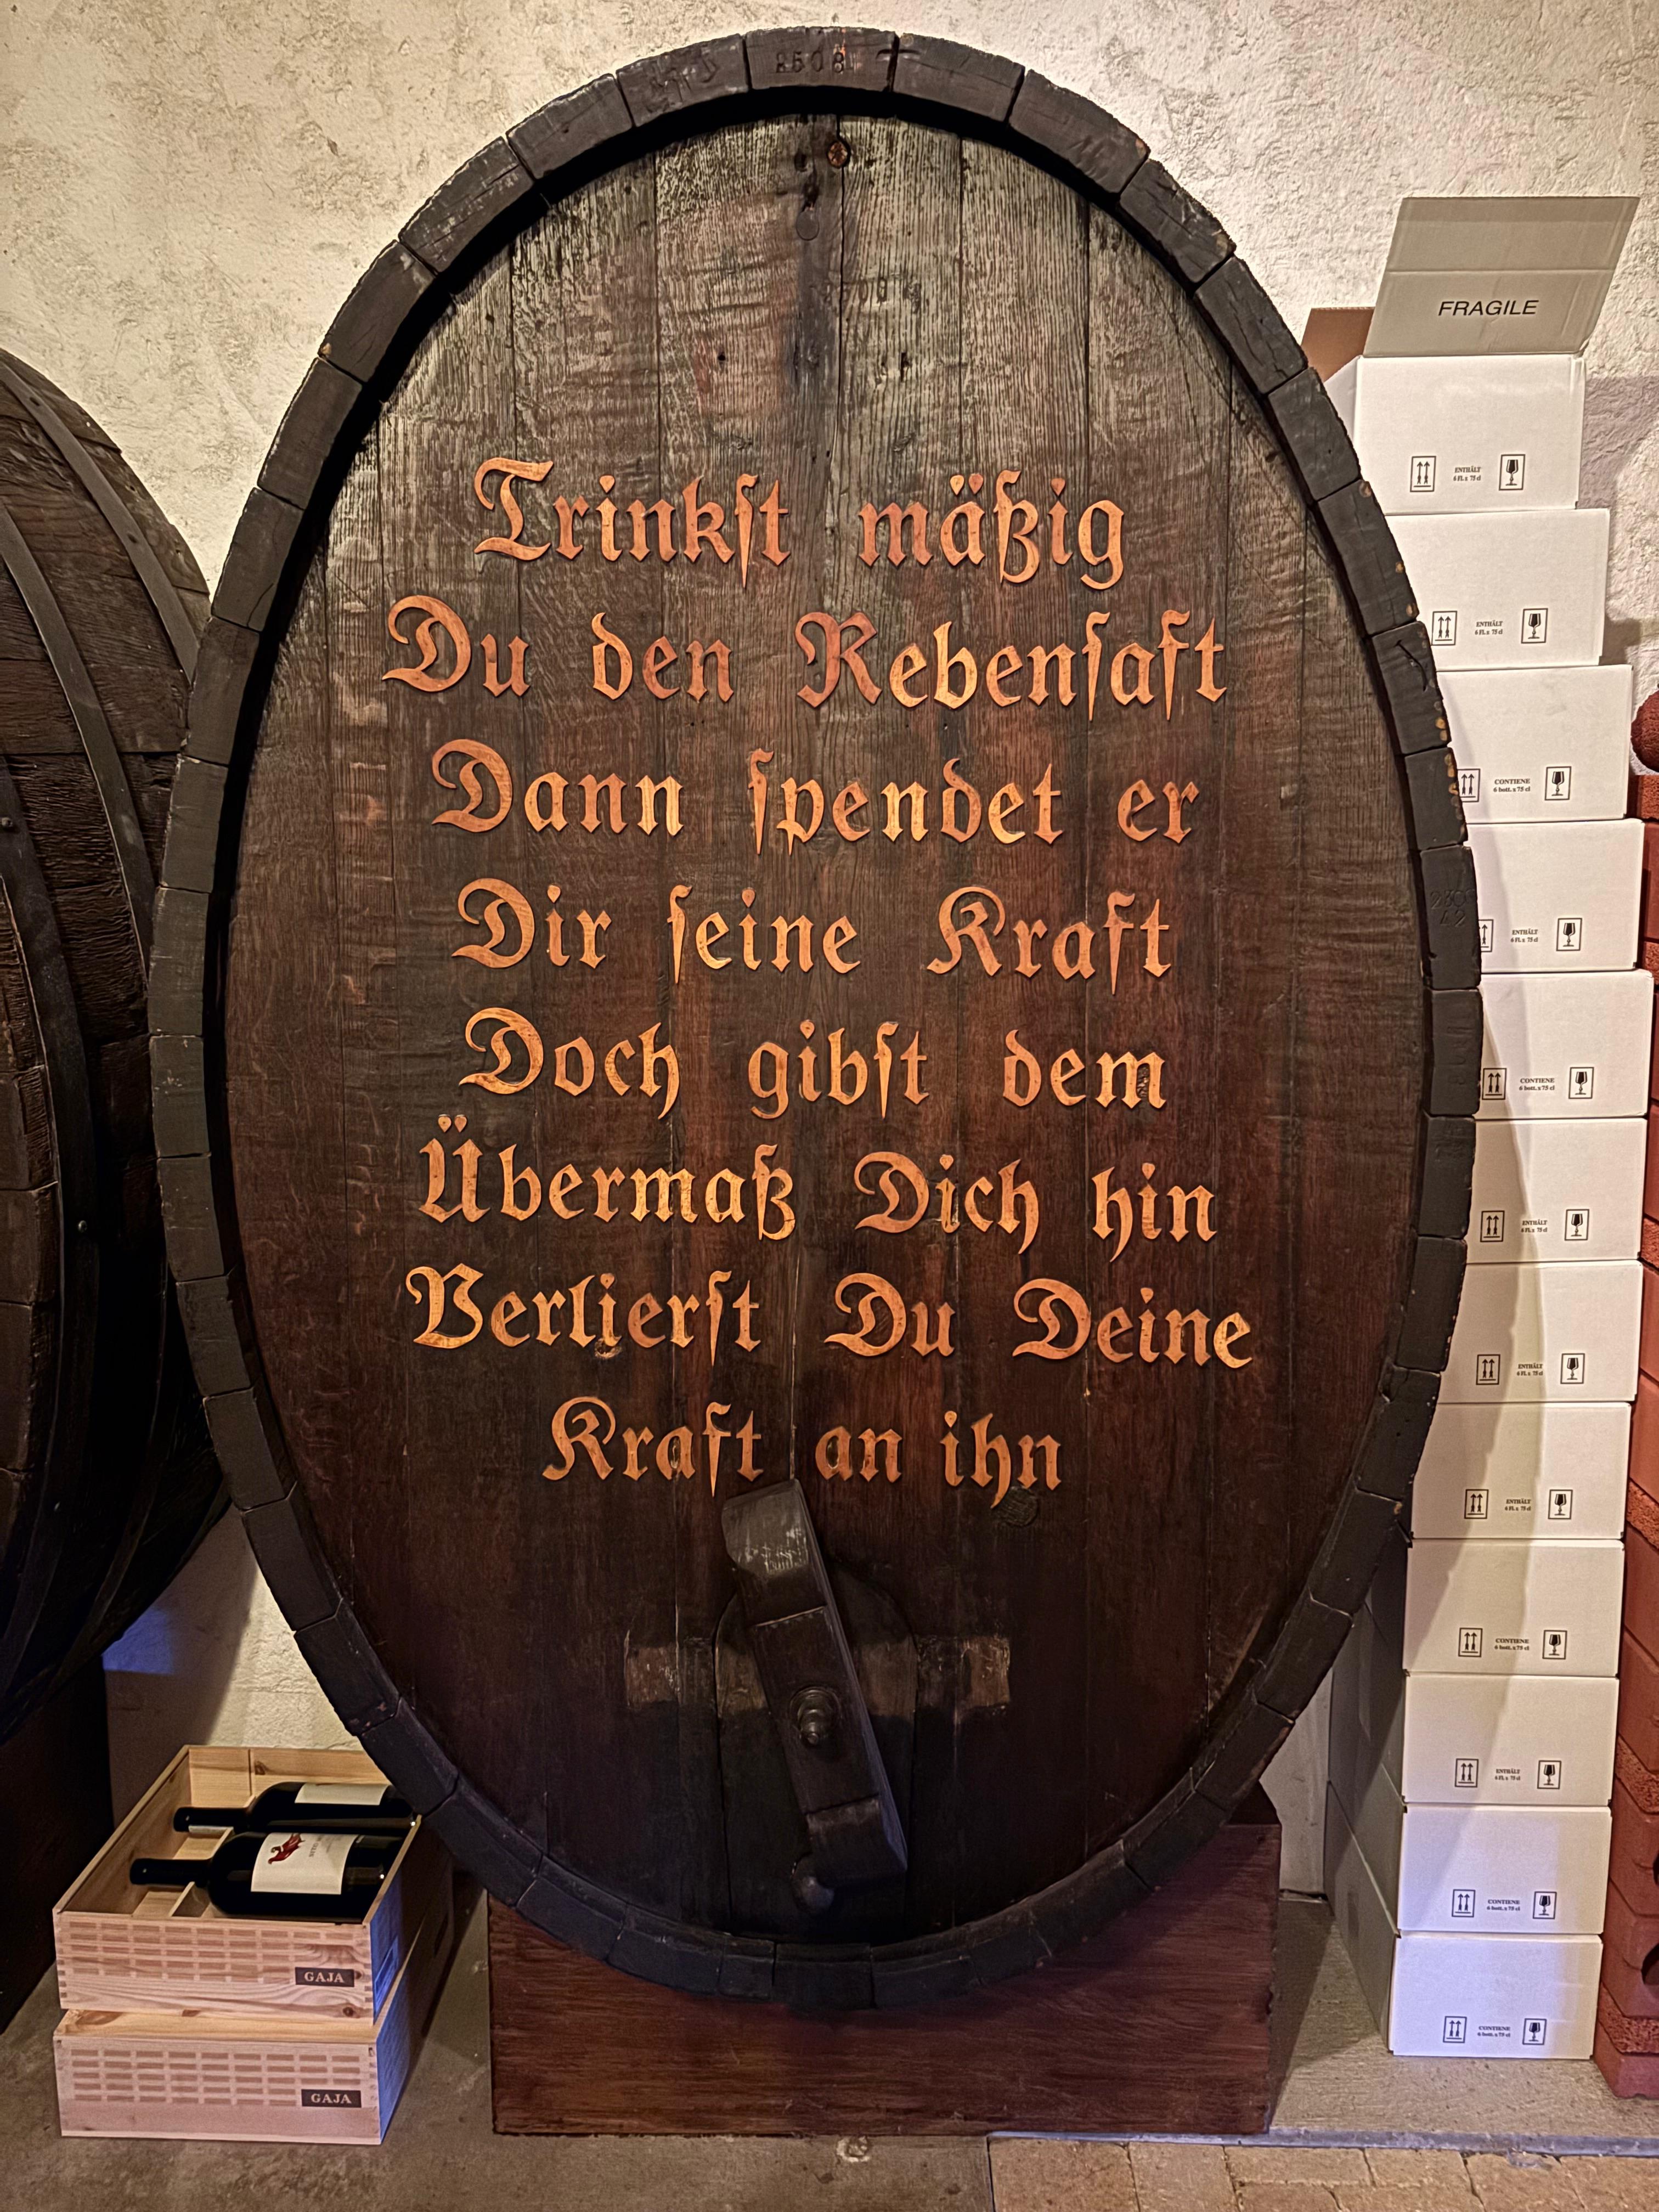 2508
Trinkſt mäßig
Du den Rebenſaft
Dann ſpendet er
Dir ſeine Kraft
Doch gibſt dem
Übermaß Dich hin
Verlierſt Du Deine
Kraft an ihn
FRAGILE
ENTHÄLT
6 Fl. x 75 cl
ENTHÄLT
6 Fl. x 75 cl
CONTIENE
6 bott. x 75 cl
ENTHÄLT
6 Fl. x 75 cl
CONTIENE
6 bott. x 75 cl
ENTHÄLT
6 Fl. x 75 cl
ENTHÄLT
6 Fl. x 75 cl
ENTHÄLT
6 Fl. x 75 cl
CONTIENE
6 bott. x 75 cl
ENTHÄLT
6 Fl. x 75 cl
CONTIENE
6 bott. x 75 cl
CONTIENE
6 bott. x 75 cl
GAJA
GAJA